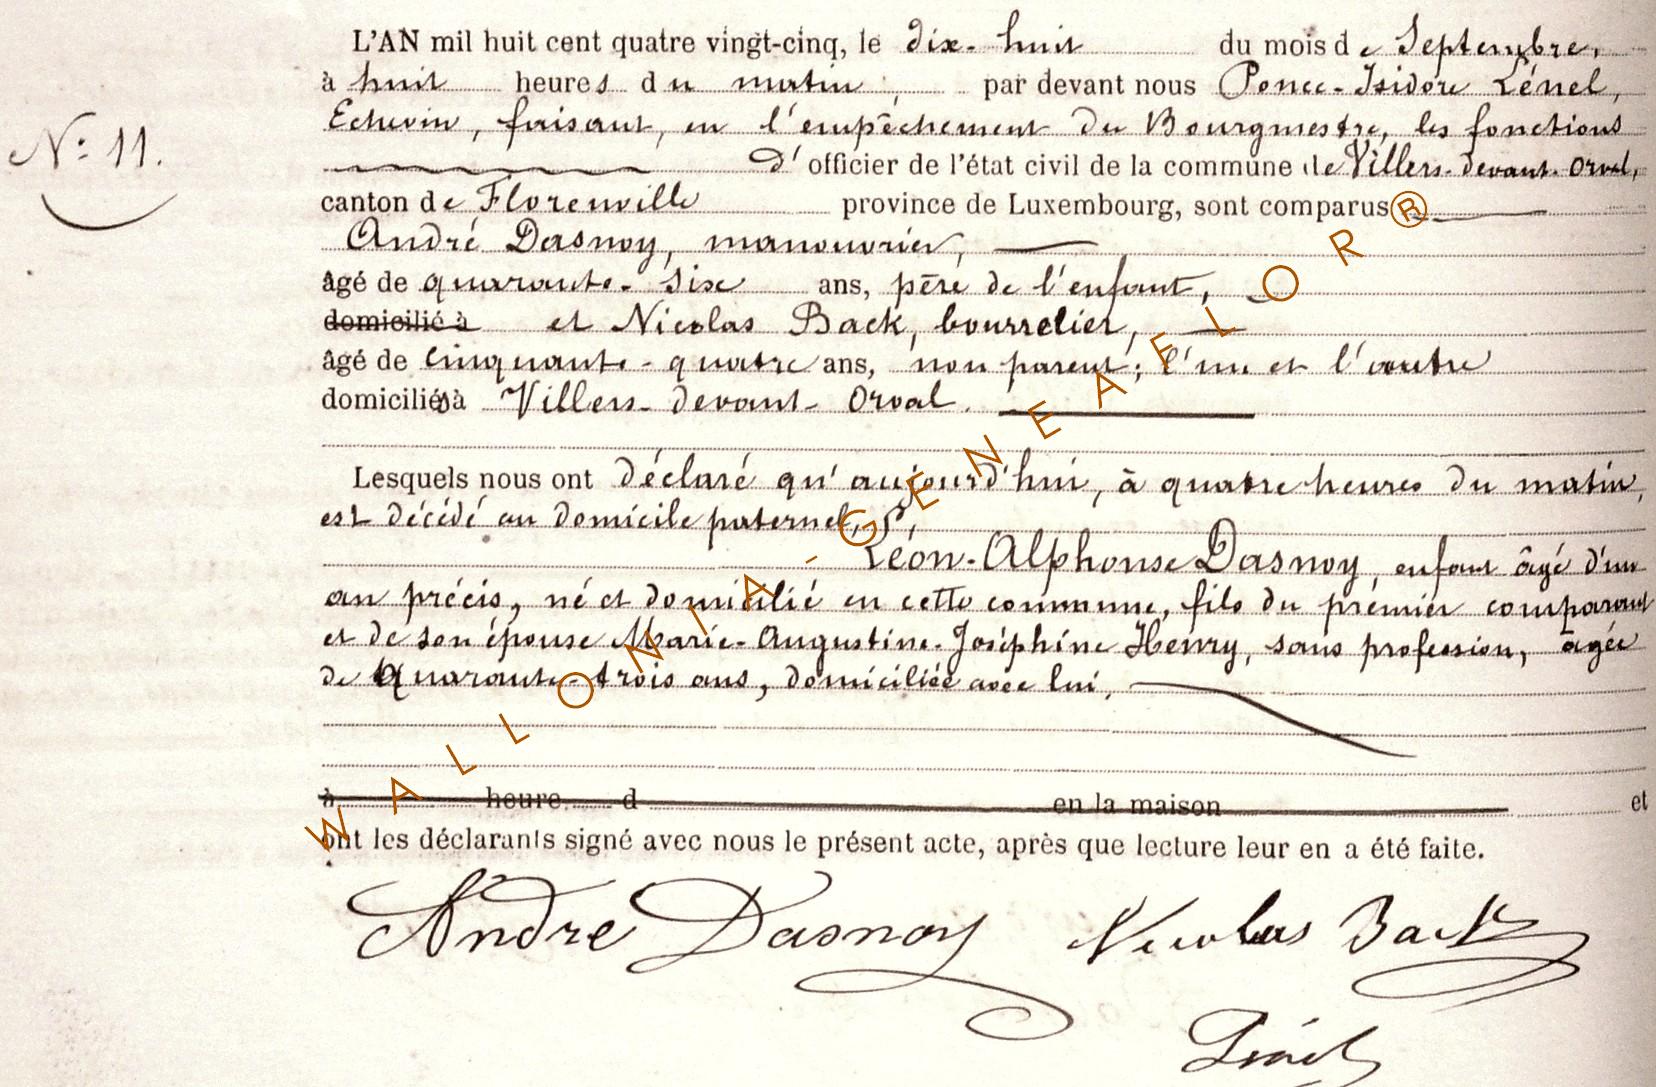 L'AN mil huit cent quatre vingt-cinq, le dix-huit du mois de Septembre,
à huit heures du matin, par devant nous Ponce-Isidore Lénel,
Echevin, faisant, en l'empêchement du Bourgmestre, les fonctions
N° 11.
d'officier de l'état civil de la commune de Villers-devant-Orval,
canton de Florenville province de Luxembourg, sont comparus
André Dasnoy, manouvrier,
âgé de quarante-six ans, père de l'enfant,
domicilié à et Nicolas Back, bourrelier,
âgé de cinquante-quatre ans, non parent; l'un et l'autre
domiciliés à Villers-devant-Orval.
Lesquels nous ont déclaré qu'aujourd'hui, à quatre heures du matin,
est décédé au domicile paternel,
Léon-Alphonse Dasnoy, enfant âgé d'un
an précis, né et domicilié en cette commune, fils du premier comparant
et de son épouse Marie-Augustine-Joséphine Henry, sans profession, âgée
de quarante-trois ans, domiciliée avec lui,
à heure d en la maison et
ont les déclarants signé avec nous le présent acte, après que lecture leur en a été faite.
André Dasnoy Nicolas Back
Lénel
WALLONIA-GENEAFLOR®